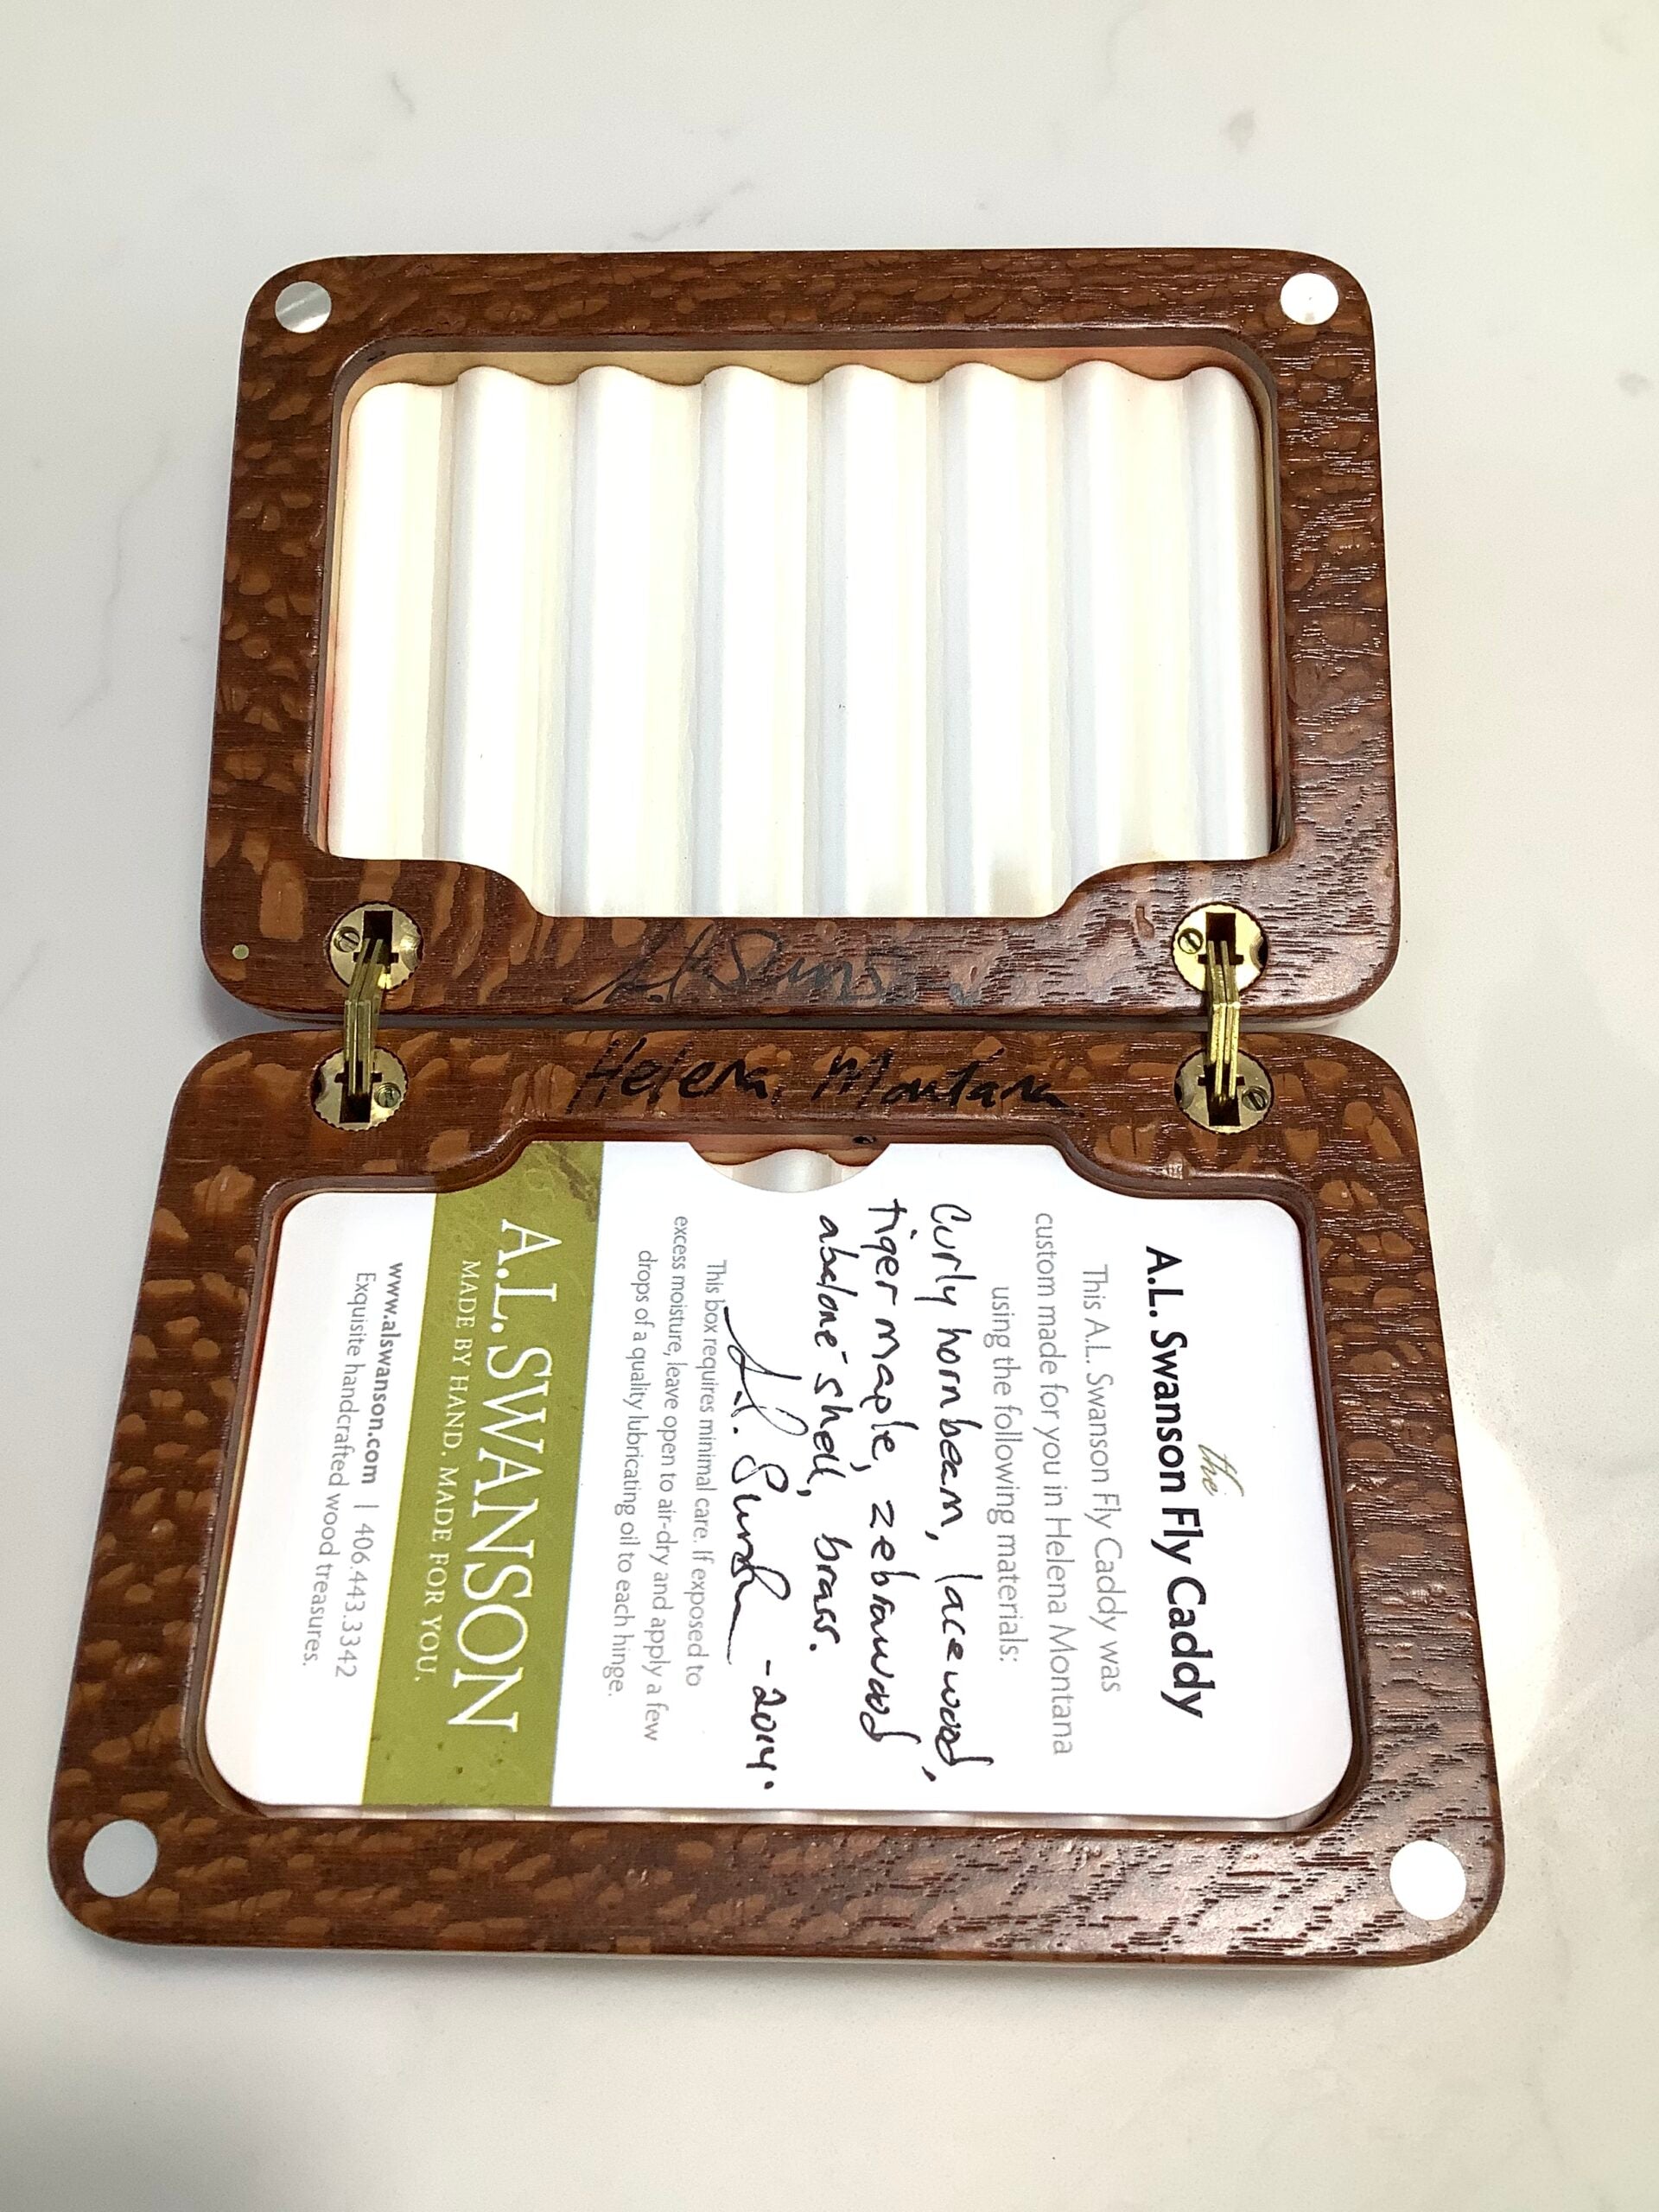 A.L. Swanson
Helena, Montana
the
A.L. Swanson Fly Caddy
This A.L. Swanson Fly Caddy was
custom made for you in Helena Montana
using the following materials:
Curly hornbeam, lacewood,
tiger maple, zebrawood
abalone shell, brass.
A.L. Swanson -2014.
This box requires minimal care. If exposed to
excess moisture, leave open to air-dry and apply a few
drops of a quality lubricating oil to each hinge.
A.L. SWANSON
MADE BY HAND. MADE FOR YOU.
www.alswanson.com | 406.443.3342
Exquisite handcrafted wood treasures.